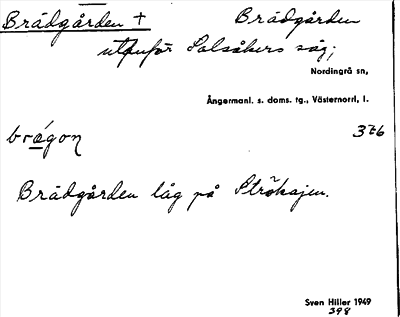 Brädgården + Brädgården
utanför Salsåkers såg;
Nordingrå sn,
Ångermanl. s. doms. tg., Västernorrl, l.
brǽgon 376
Brädgården låg på Strökajen.
Sven Hiller 1949
398